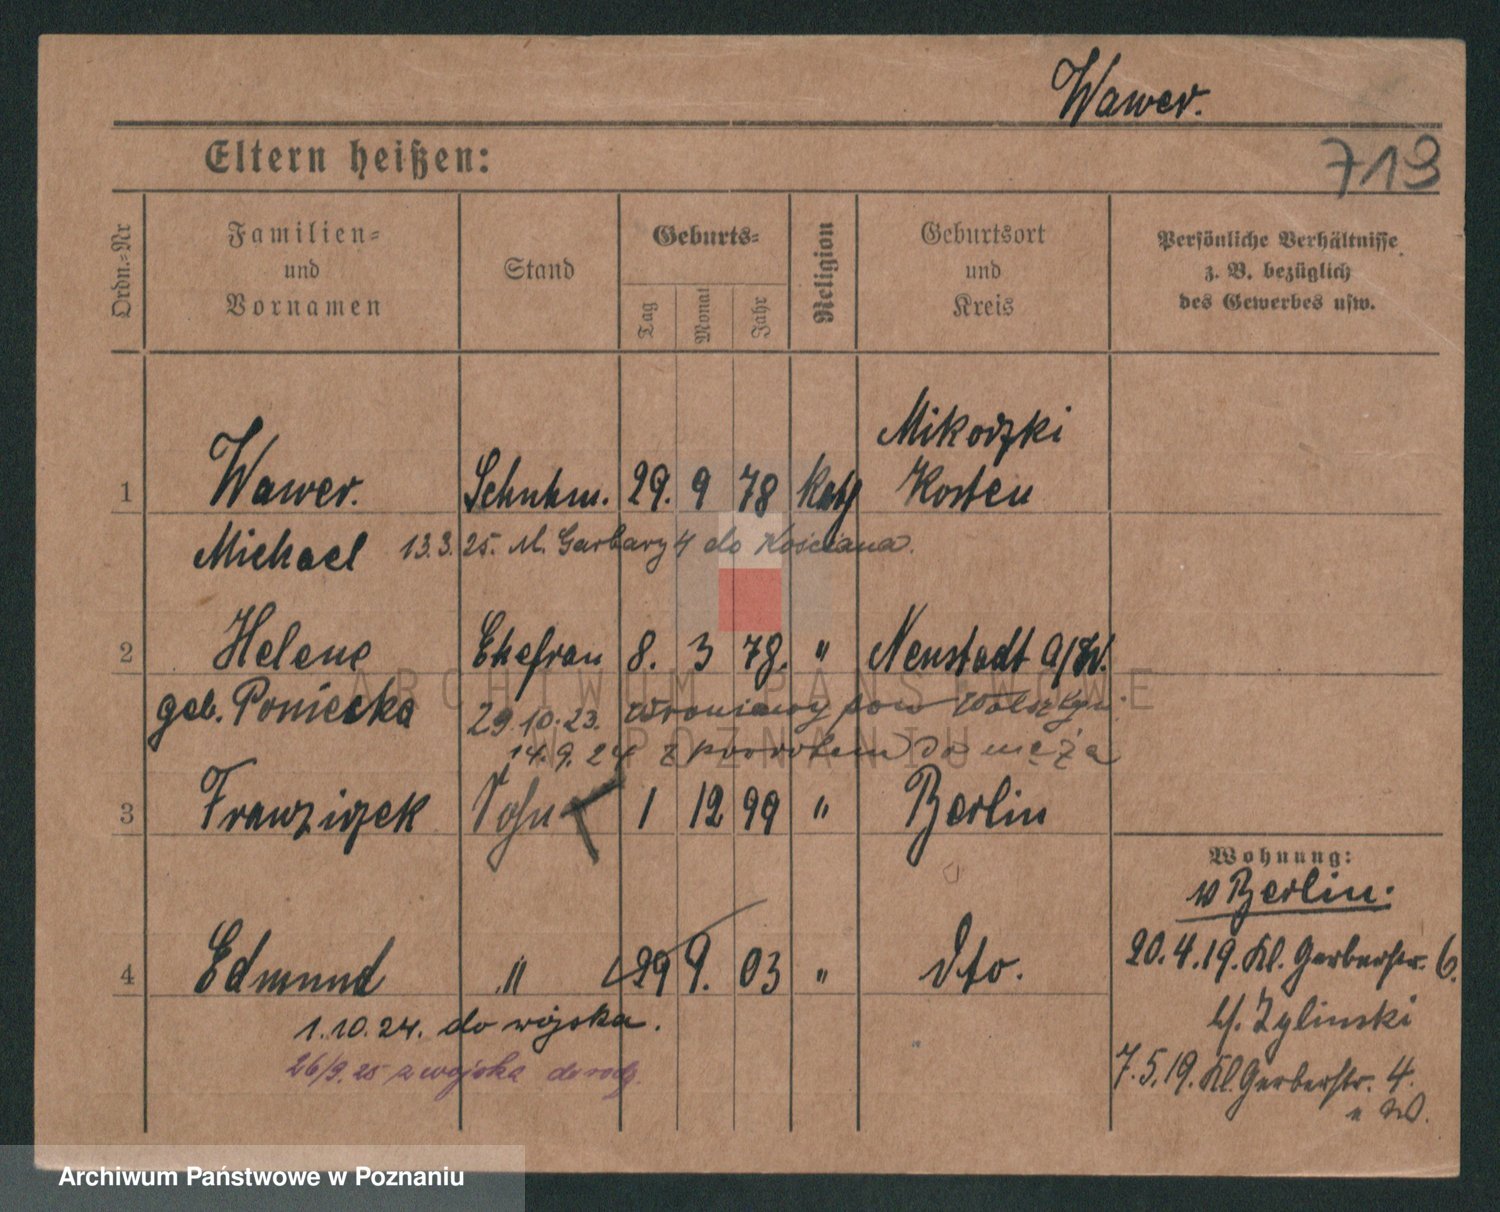 Wawer.
713
Eltern heißen:
Ordn.=Nr
Familien=
und
Vornamen
Stand
Geburts=
Tag
Monat
Jahr
Religion
Geburtsort
und
Kreis
Persönliche Verhältnisse
z. B. bezüglich
des Gewerbes usw.
Mikoszki
1 Wawer. Schuhm. 29. 9 78 Kath Kosten
Michael 13.3.25. M. Garbary 4 do Kościana.
2 Helene Ehefrau 8. 3 78. " Neustadt a/W.
geb. Poniecka 29.10.23. Wroniawy pow Wolsztyn
14.9.24 z powrotem do męża
3 Franziszek Sohn 1 12 99 " Berlin
Wohnung:
v Berlin.
4 Edmund " 29 9. 03 " dto.
20.4.19. Kl. Gerberstr. 6.
b/. Zylinski
1.10.24. do wojska.
26/9.25 z wojska do rodz.
7.5.19. Kl. Gerberstr. 4.
ARCHIWUM PAŃSTWOWE
W POZNANIU
Archiwum Państwowe w Poznaniu